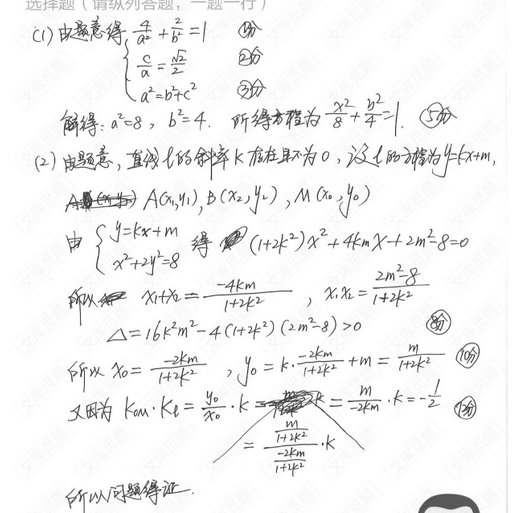 选择题（请纵列答题，一题一行）
(1) 由题意得 4/a² + 2/b² = 1 ①分
c/a = √2/2 ②分
a² = b² + c² ③分
解得: a²=8, b²=4. 所得方程为 x²/8 + b²/4 = 1. ⑤分
(2) 由题意, 直线l的斜率k存在且不为0, 设l的方程为y=kx+m,
A(x₁,y₁), B(x₂,y₂), M(x₀,y₀)
由 { y=kx+m 得 (1+2k²)x²+4kmx+2m²-8=0
x²+2y²=8
所以 x₁+x₂ = -4km/(1+2k²), x₁x₂ = (2m²-8)/(1+2k²)
△=16k²m²-4(1+2k²)(2m²-8)>0 ⑧分
所以 x₀ = -2km/(1+2k²), y₀ = k·(-2km)/(1+2k²) + m = m/(1+2k²) ⑩分
又因为 k_OM·k_l = y₀/x₀·k = m/(-2km)·k = -1/2 ⑫分
= (m/(1+2k²))/(-2km/(1+2k²))·k
所以问题得证.